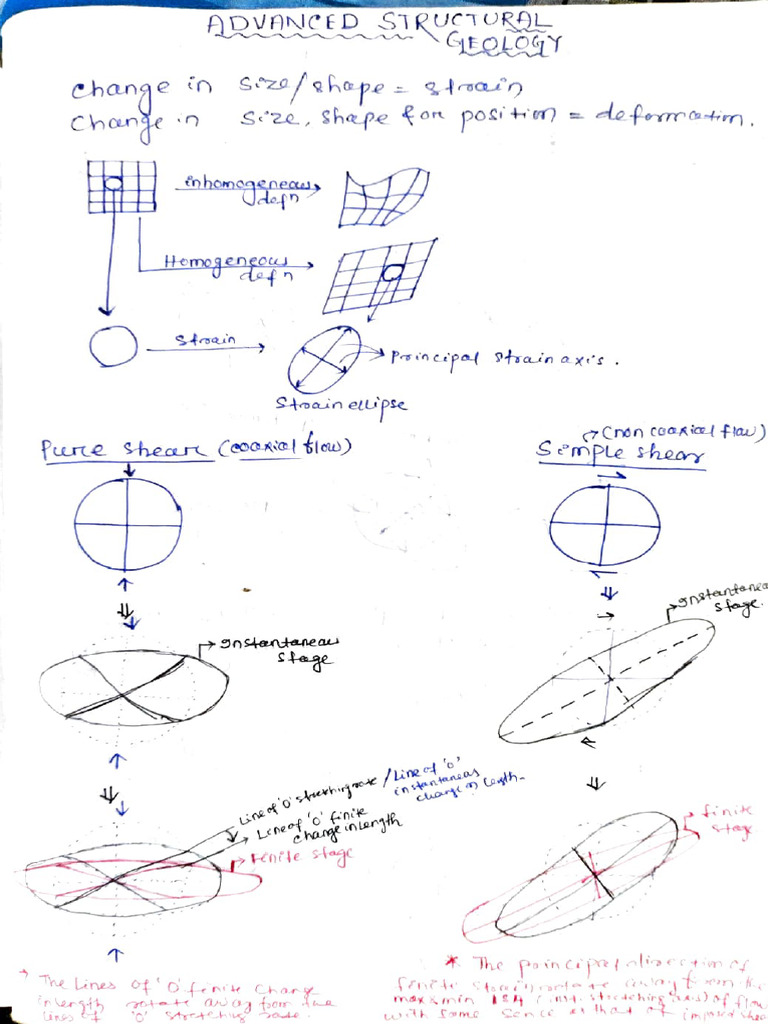 ADVANCED STRUCTURAL
GEOLOGY
Change in size/shape = strain
Change in size, shape & or position = deformation.
inhomogeneous
defn
Homogeneous
defn
Strain
Principal strain axis.
Strain ellipse
Pure shear (coaxial flow)
(non coaxial flow)
Simple shear
Instantaneous
stage
Instantaneous
stage.
Line of '0' stretching rate / Line of '0'
instantaneous
change in length.
Line of '0' finite
change in length
Finite stage
finite
stage
The Lines of '0' finite change
in length rotate away from the
lines of '0' stretching rate.
* The principal direction of
finite strain rotate away from the
max & min ISA (inst. stretching axis) of flow
with same sence as that of imposed shear